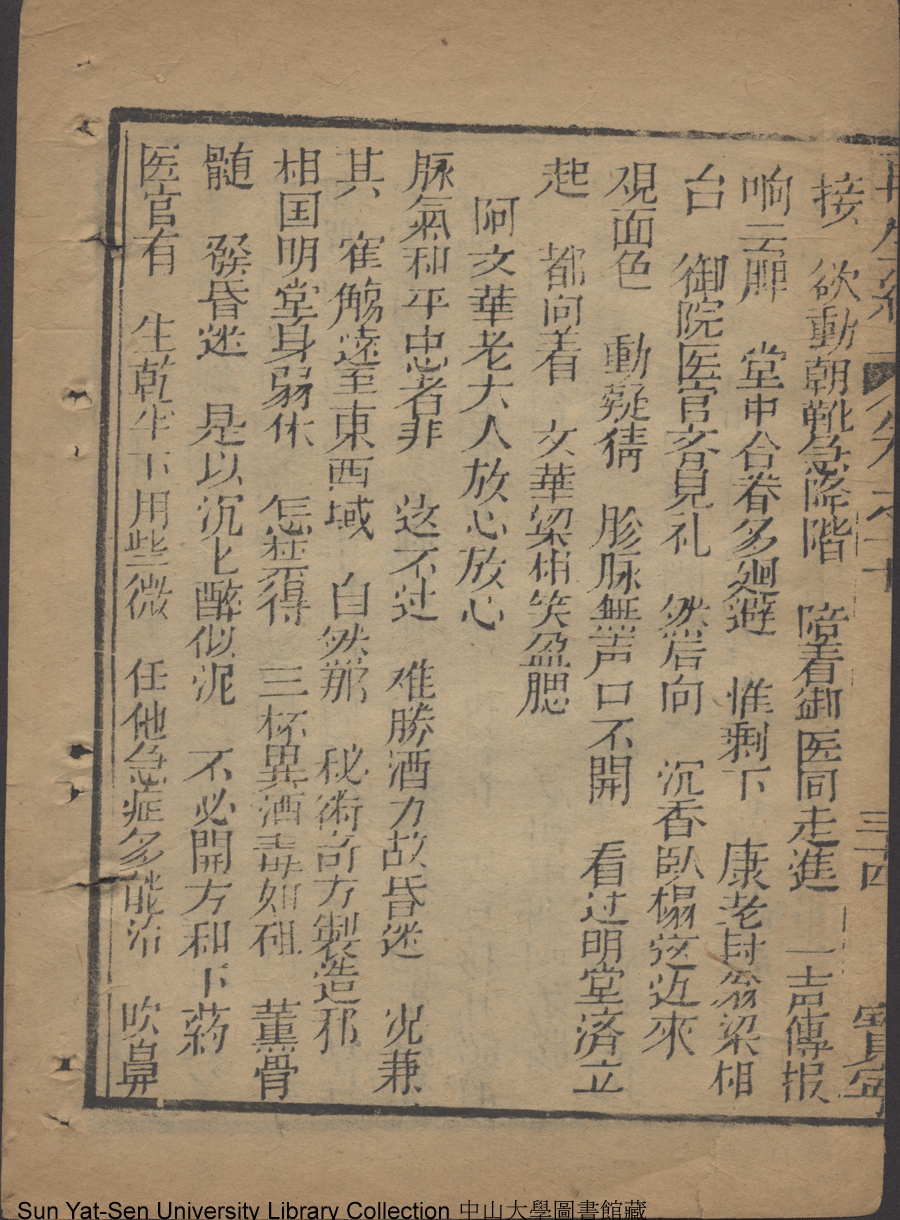 再生緣 卷之十 三四 寶
接 欲動朝靴急降階 陪着御医同走進 一声傳报
响云牌 堂中合眷多廻避 惟剩下 康老封翁梁相
台 御院医官斉見礼 然后向 沉香臥榻迄近來
观面色 動疑猜 胗脉無声口不開 看过明堂済立
起 都问着 文華梁相笑盈腮
阿文華老大人放心放心
脉氣和平忠者非 这不过 难勝酒力故昏迷 况兼
其 寉觴遠至東西域 自然那 秘術奇方製造邪
相国明堂身弱休 怎禁得 三杯異酒毒如砒 薫骨
髄 發昏迷 是以沉上醉似泥 不必開方和下葯
医官有 生乾半下用些微 任他急症多能治 吹鼻
Sun Yat-Sen University Library Collection 中山大學圖書館藏